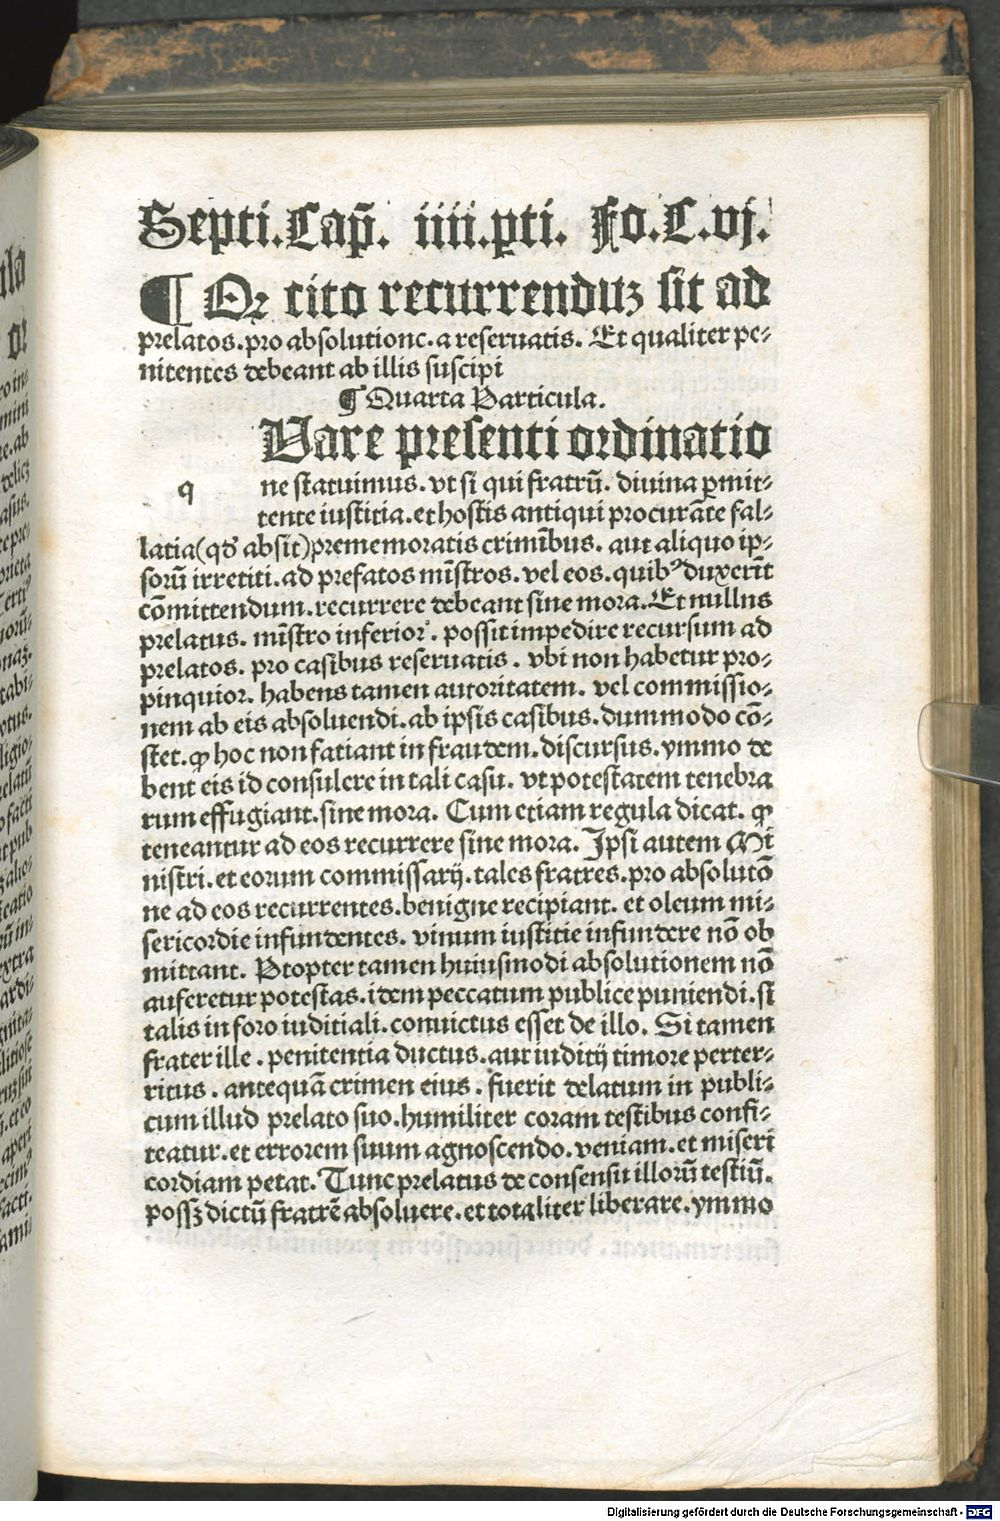 Septi.Cap̄. iiii.ꝑti. Fo.C.vj.
¶ Qꝛ cito recurrenduꝫ sit ad
prelatos.pro absolutione.a reseruatis. Et qualiter pe⸗
nitentes debeant ab illis suscipi
¶ Quarta Particula.
Uare presenti ordinatio
q ne statuimus. vt si qui fratrū. diuina ꝑmit⸗
tente iustitia.et hostis antiqui procurāte fal⸗
latia(qđ absit)prememoratis crimībus. aut aliquo ip⸗
sorū irretiti.ad prefatos mīstros.vel eos.quibꝰ duxerīt
cōmittendum.recurrere debeant sine mora.Et nullus
prelatus. mīstro inferior. possit impedire recursum ad
prelatos. pro casibus reseruatis. vbi non habetur pro⸗
pinquior. habens tamen autoritatem. vel commissio⸗
nem ab eis absoluendi.ab ipsis casibus.dummodo cō⸗
stet.ꝙ hoc non fatiant in fraudem.discursus.ymmo de
bent eis id consulere in tali casu. vt potestatem tenebra
rum effugiant.sine mora. Cum etiam regula dicat. ꝙ
teneantur ad eos recurrere sine mora. Ipsi autem Mi
nistri.et eorum commissarij.tales fratres.pro absolutō
ne ad eos recurrentes.benigne recipiant. et oleum mi⸗
sericordie infundentes. vinum iustitie infundere nō ob
mittant. Ptopter tamen huiusmodi absolutionem nō
auferetur potestas.idem peccatum publice puniendi.si
talis in foro iuditiali.conuictus esset de illo. Si tamen
frater ille. penitentia ductus.aut iuditij timore perter⸗
ritus. antequā crimen eius. fuerit delatum in publi⸗
cum illud prelato suo.humiliter coram testibus confi⸗
teatur.et errorem suum agnoscendo.veniam.et miseri
cordiam petat. Tunc prelatus de consensu illorū testiū.
possꝫ dictū fratrē absoluere.et totaliter liberare.ymmo
Digitalisierung gefördert durch die Deutsche Forschungsgemeinschaft - DFG